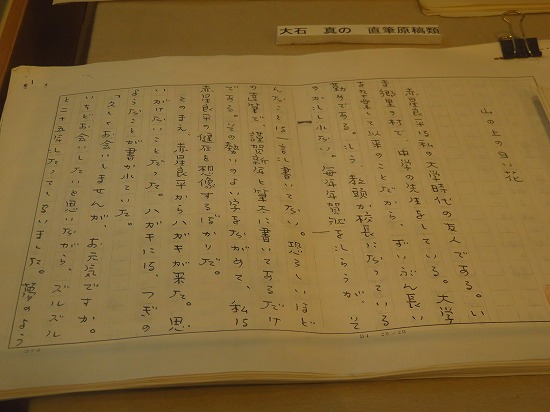 大石 真の 直筆原稿類
山の上の白い花
赤星良平は私の大学時代の友人である。い
ま郷里の村で、中学の先生をしている。大学
を卒業して以来のことだから、ずいぶん長い
勤めである。もう、教頭か校長になっている
のかもしれない。毎年年賀状をもらうが、そ
んなことは一言も書いてない。恐ろしいほど
の達筆で、謹賀新年と筆太に書いてあるだけ
である。その勢いのよい字をながめて、私は
赤星良平の健在を想像するばかりだ。
そのまえ、赤星良平からハガキが来た。思
いがけないことだった。ハガキには、つぎの
ようなことが書かれていた。
「久しくお会いしませんが、お元気ですか。
いちどお会いしたいと思いながら、ズルズル
と二十五年もたってしまいました。夢のよう